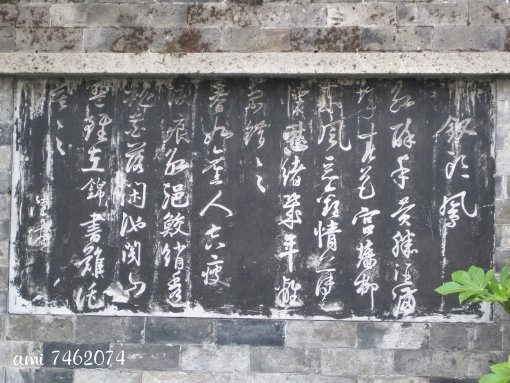 釵頭鳳
紅酥手黃縢酒滿
城春色宮墻柳
東風惡歡情薄一
懷愁緒幾年離
索錯〻〻
春如舊人空瘦
淚痕紅浥鮫綃透
桃花落閑池閣山
盟雖在錦書難托
莫〻〻
ami 7462074